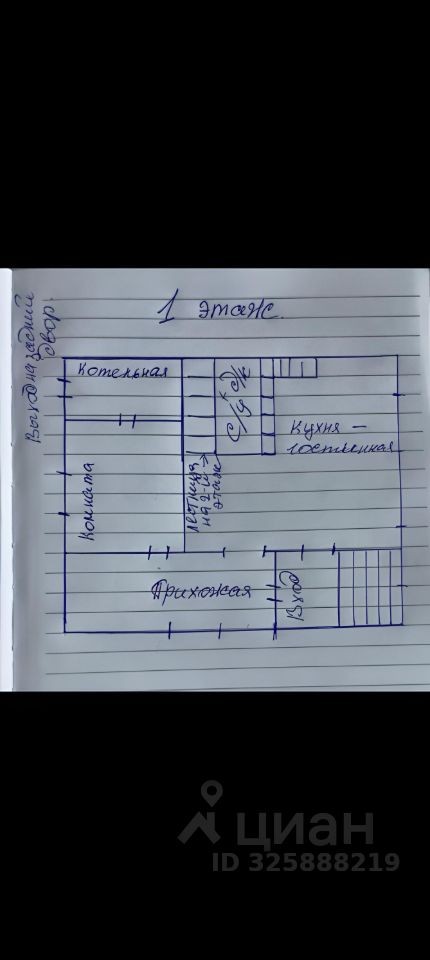 1 этаж.
Выход на задний
двор.
Котельная
С/у
Кухня –
гостинная
Комната
лестница
на 2-й
этаж
Прихожая
Вход
циан
ID 325888219